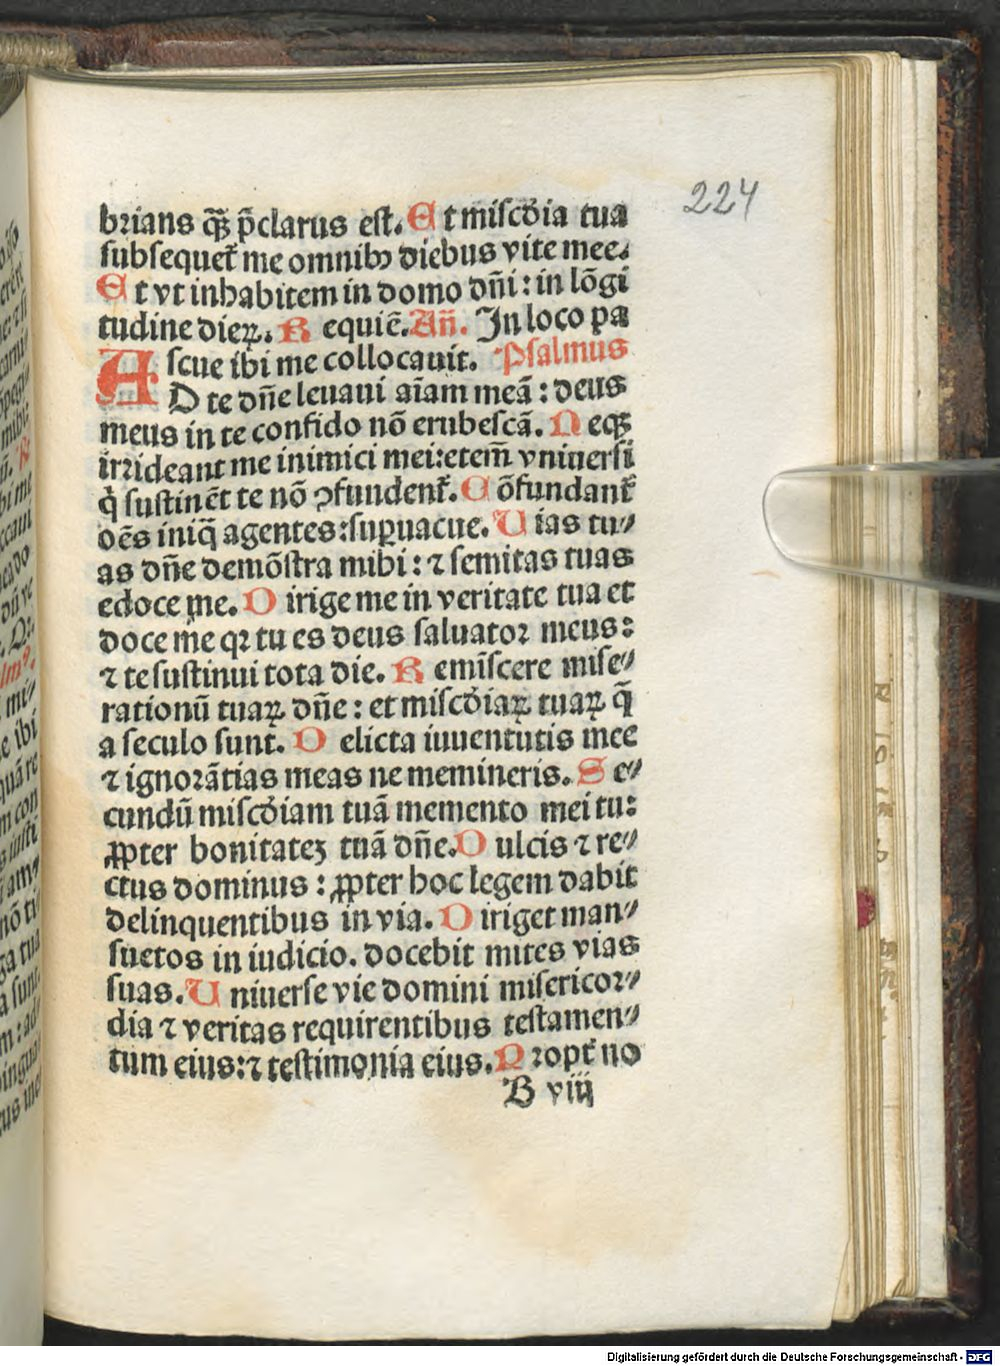 224
brians q̄ꝫ p̄clarus est. Et misc̄dia tua
subsequet᷑ me omnibꝰ diebus vite mee.
Et vt inhabitem in domo dn̄i : in lōgi
tudine dieꝝ. Requiē. An̄. In loco pa
scue ibi me collocauit. Psalmus
AD te dn̄e leuaui aīam meā : deus
meus in te confido nō erubescā. Neqꝫ
irrideant me inimici mei:etem̄ vniuersi
q̇ sustinēt te nō ꝯfundent᷑. Cōfundant᷑
oēs iniq̄ agentes:suꝑuacue. Vias tu⸗
as dn̄e demōstra mihi : ⁊ semitas tuas
edoce me. Dirige me in veritate tua et
doce me qꝛ tu es deus saluator meus:
⁊ te sustinui tota die. Remīscere mise⸗
rationū tuaꝝ dn̄e : et misc̄diaꝝ tuaꝝ q̄
a seculo sunt. Delicta iuuentutis mee
⁊ ignorātias meas ne memineris. Se⸗
cundū misc̄diam tuā memento mei tu:
ꝓpter bonitateꝫ tuā dn̄e. Dulcis ⁊ re⸗
ctus dominus : ꝓpter hoc legem dabit
delinquentibus in via. Diriget man⸗
suetos in iudicio. docebit mites vias
suas. Vniuerse vie domini misericor⸗
dia ⁊ veritas requirentibus testamen⸗
tum eius:⁊ testimonia eius. Propt᷑ no
B viij
Digitalisierung gefördert durch die Deutsche Forschungsgemeinschaft - DFG